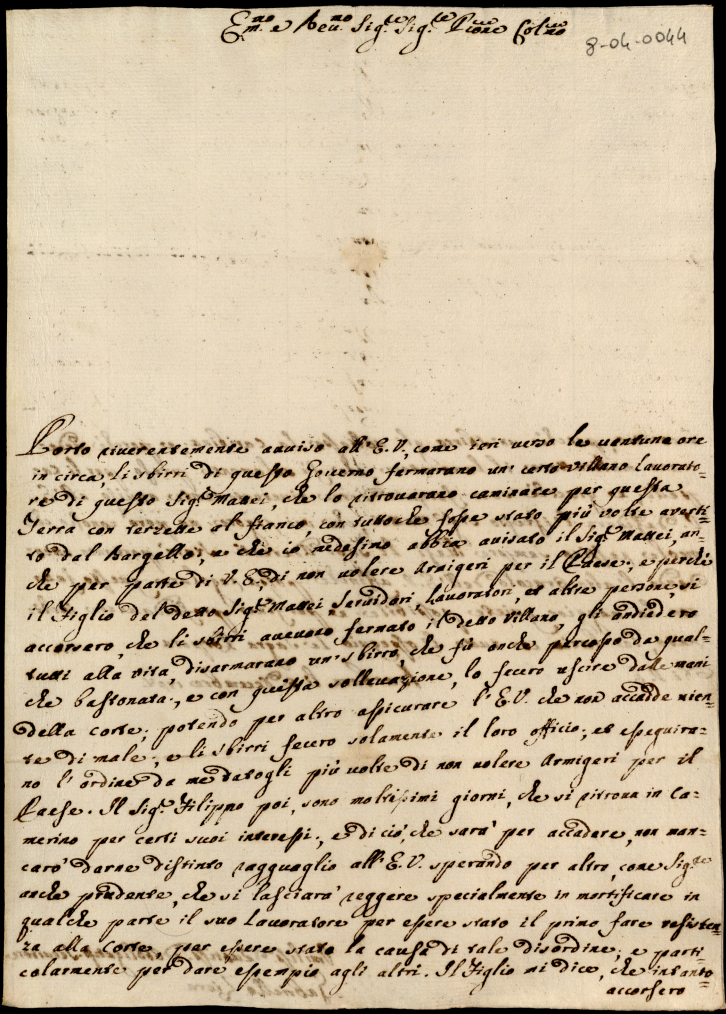 Em.no e Reu.no Sig.re Sig.re P̃rone Col.mo
8-04-0044
Porto riuerentemente auuiso all'E.V., come ieri verso le uentune ore
in circa, li sbirri di questo Gouerno fermarano un' certo Villano lauorato=
re di questo Sig.r Mattei, che lo ritrouarano caminare per questa
Terra con terzette al fianco, con tutto che fosse stato più volte auerti=
to dal Bargello, e che io medesimo abbia auisato il Sig.r Mattei, an=
che per parte di V.E., di non volere Armigeri per il Paese, e perchè
il Figlio del detto Sig.r Mattei, Seruidori, Lauoratori, et altre persone, si
accorsero, che li sbirri aueuano fermato il detto Villano, gli andiedero
tutti alla vita, disarmarano un' sbirro, che fù anche percosso da qual=
che bastonata, e con questa solleuazione, lo fecero uscire dalle mani
della Corte; potendo per altro assicurare l'E.V. che non accadde nien=
te di male, e li sbirri fecero solamente il loro officio, et eseguira=
no l'ordine da me datogli più volte di non volere Armigeri per il
Paese. Il Sig.r Filippo poi, sono moltissimi giorni, che si ritroua in Ca=
merino per certi suoi interessi, e di ciò, che sarà per accadere, non man=
carò darne distinto ragguaglio all'E.V. sperando per altro, come Sig.re
anche prudente, che si lasciarà reggere specialmente in mortificare in
qualche parte il suo Lauoratore per essere stato il primo fare resisten=
za alla Corte, per essere stato la causa di tale disordine, e parti=
colarmente per dare esempio agli altri. Il Figlio mi dice, che intanto
accorsero